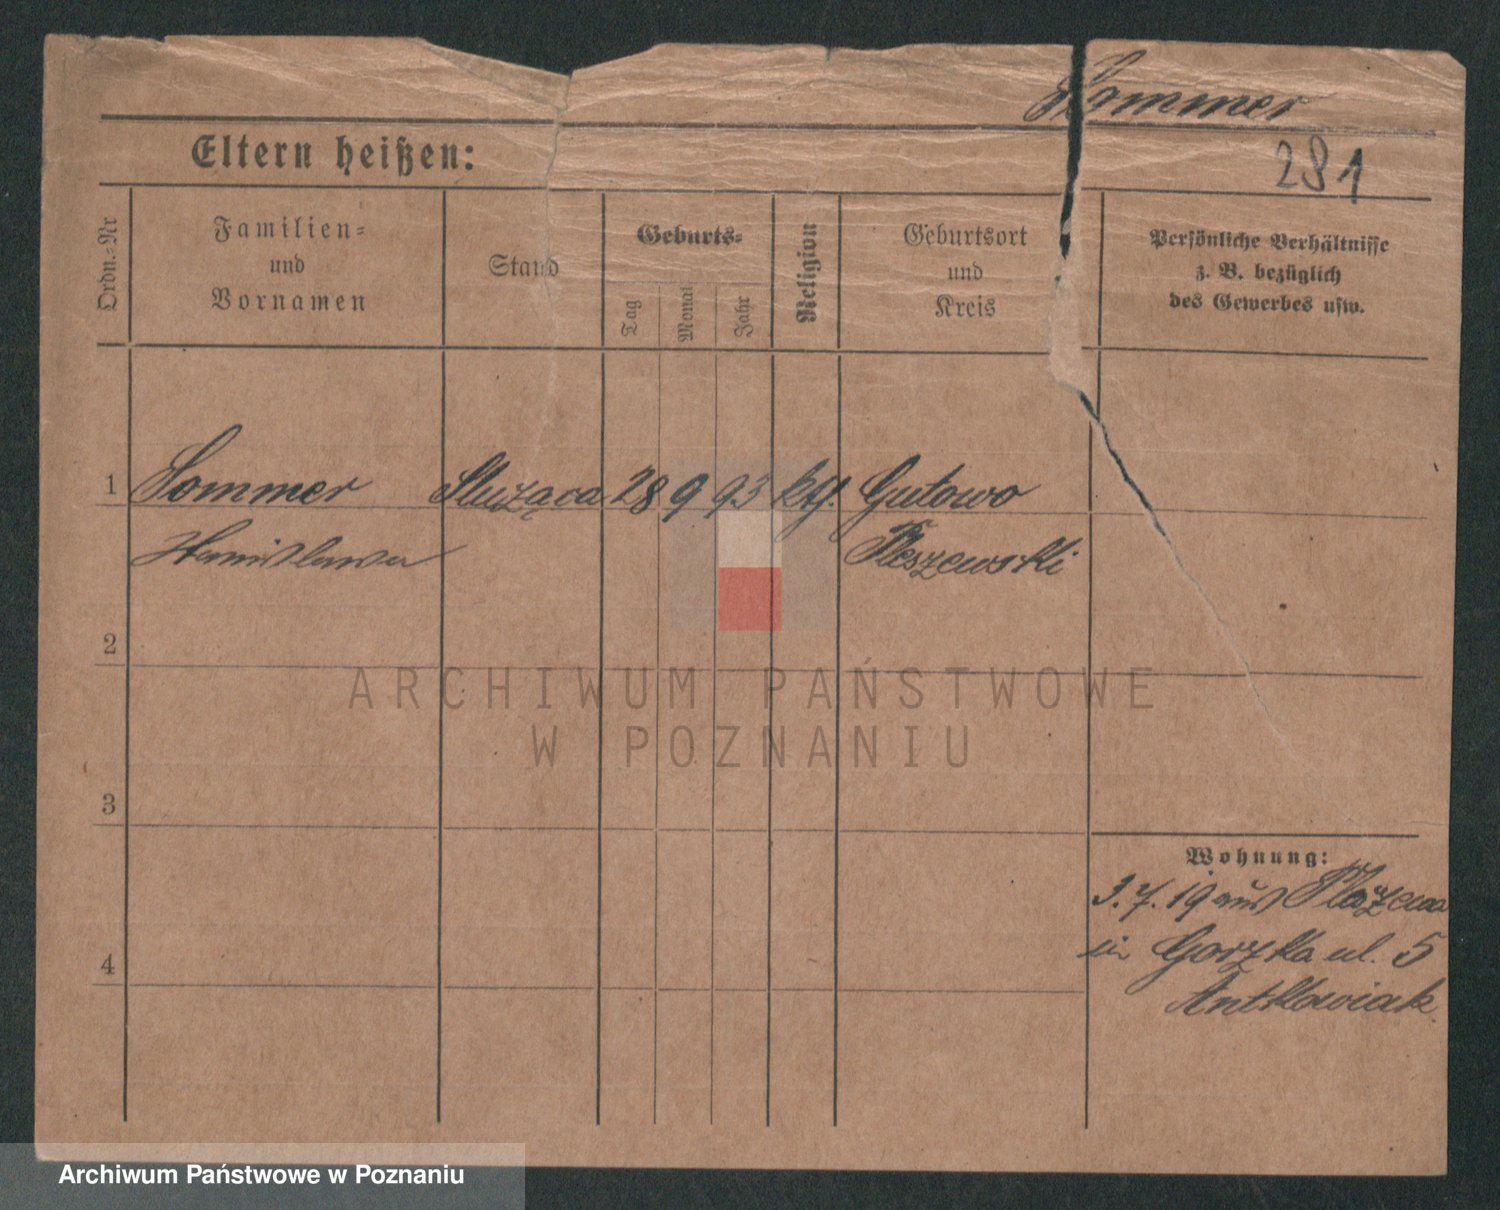 Sommer
Eltern heißen:
281
Ordn.-Nr
Familien-
und
Vornamen
Stand
Geburts-
Tag
Monat
Jahr
Religion
Geburtsort
und
Kreis
Persönliche Verhältnisse
z. B. bezüglich
des Gewerbes usw.
1 Sommer Służąca 28 9 93 Gutowo
Pleszewski
2
3
4
Wohnung:
3.7.19 aus
in Gorzka ul. 5
Antkowiak.
ARCHIWUM PAŃSTWOWE
W POZNANIU
Archiwum Państwowe w Poznaniu